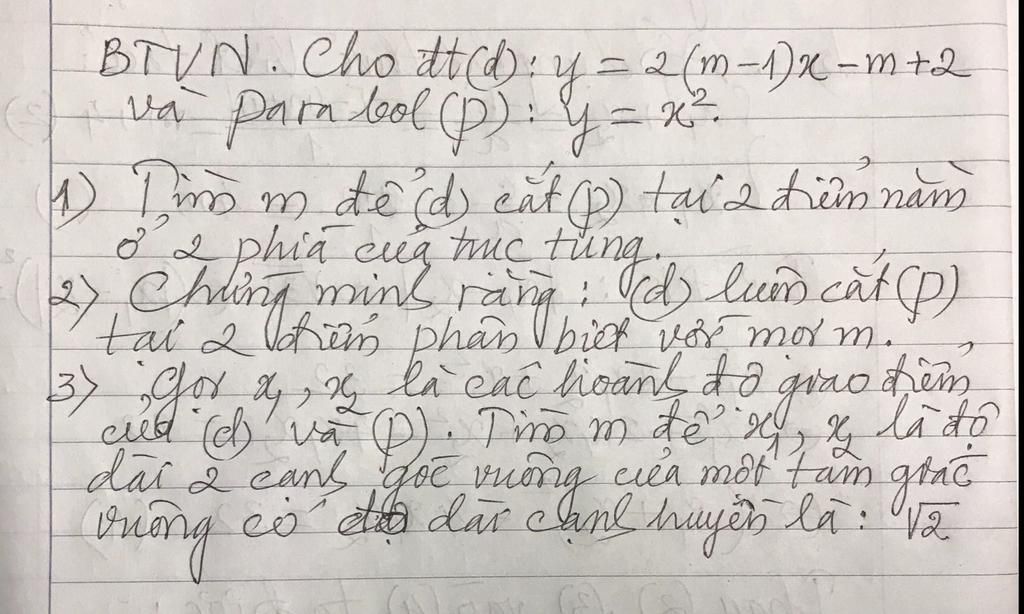 BTVN. Cho đt(d): y = 2(m-1)x - m+2
và parabol (p): y = x².
1) Tìm m để (d) cắt (p) tại 2 điểm nằm
ở 2 phía của trục tung.
2) Chứng minh rằng: (d) luôn cắt (p)
tại 2 điểm phân biệt với mọi m.
3) Gọi x₁, x₂ là các hoành độ giao điểm
của (d) và (p). Tìm m để x₁, x₂ là độ
dài 2 cạnh góc vuông của một tam giác
vuông có độ dài cạnh huyền là: √2